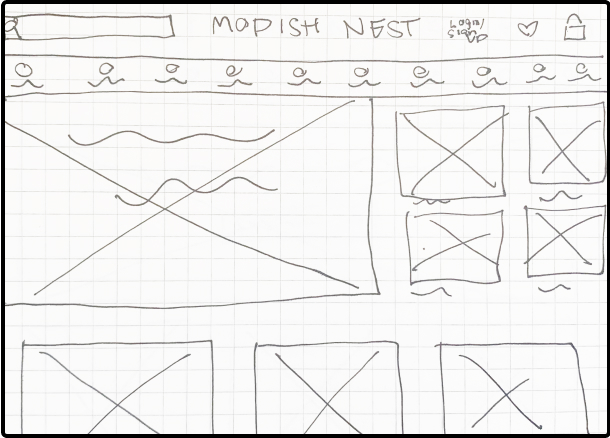 MODISH NEST
Login/
Sign
UP